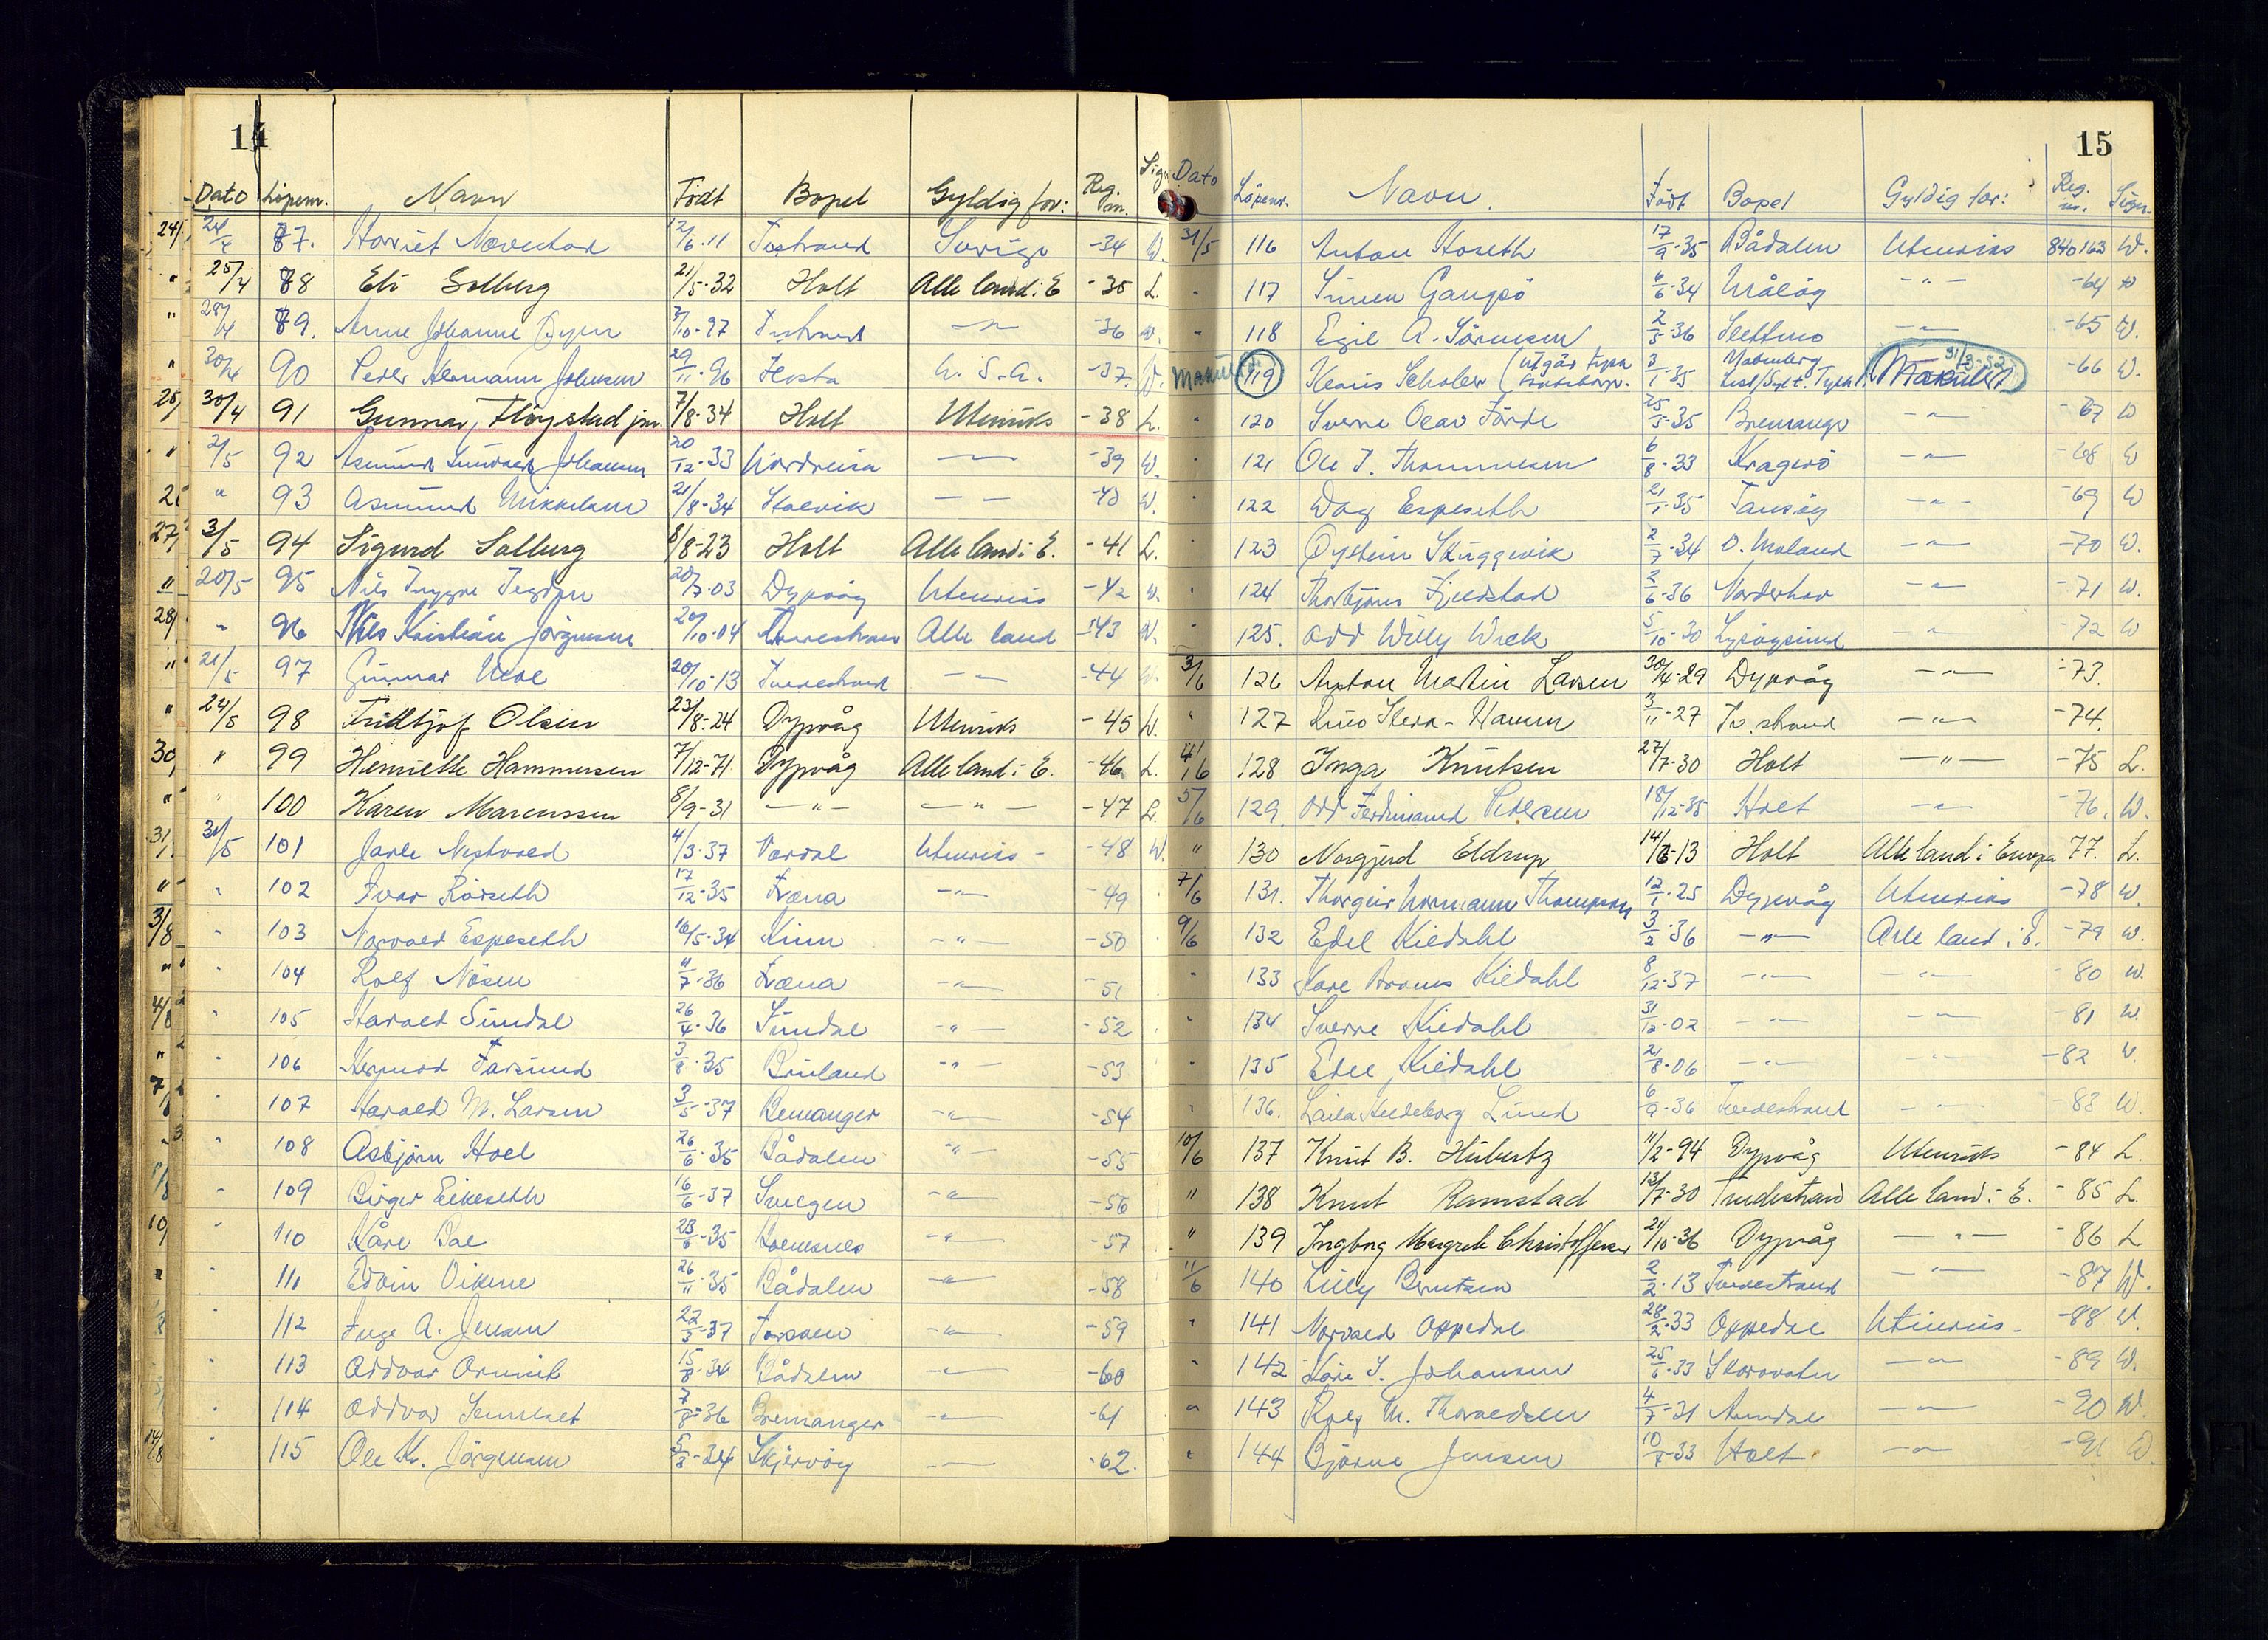 14
Dato Löpenr. Navn Født Bopel Gyldig for: Reg. nr. Sign.
24/4 87. Harriet 12/6-11 Tvstrand Sverige -34 W.
25/4 88 Eli Solberg 21/5-32 Holt Alle land i E -35 L.
28/4 89. Anne Johanne 7/10-97 Tvstrand -"- -36 W.
30/4 90 Peder Hermann Johnsen 29/11-96 Flosta U.S.A. -37. W.
30/4 91 Gunnar Fløystad jnr. 7/8-34 Holt Utenriks -38 L.
2/5 92 Johansen 20/12-33 Nordreisa -"- -39 W.
" 93 Asmund Mikkelsen 21/8-34 -"- -40 W.
3/5 94 Sigurd Solberg 8/8-23 Holt Alle land i E. -41 L.
20/5 95 Nils Trygve 20/7-03 Dypvåg Utenriks -42 W.
" 96 Nils Kristian Jörgensen 20/10-04 Tvedestrand Alle land -43 W.
21/5 97 Gunnar 20/10-13 Tvedestrand -"- -44 W.
24/5 98 Fridtjof Olsen 23/8-24 Dypvåg Utenriks -45 L.
" 99 Henriette Hammersen 7/12-71 Dypvåg Alle land i E. -46 L.
" 100 Karen Marcussen 8/9-31 -"- -"- -47 L.
31/5 101 Jarle Nestvold 4/3-37 Utenriks -48 W.
" 102 Ivar Rörseth 17/12-35 Træna -"- -49
" 103 Norvald Espeseth 16/5-34 Kinn -"- -50
" 104 Rolf Nåsen 11/7-36 Træna -"- -51
" 105 Harald Sundal 26/4-36 Sundal -"- -52
" 106 Hermod Farsund 3/8-35 -"- -53
" 107 Harald M. Larsen 3/5-37 Bremanger -"- -54
" 108 Asbjörn Hoel 26/6-35 Bådalen -"- -55
" 109 Birger Eikeseth 16/6-37 Svelgen -"- -56
" 110 Kåre 23/6-35 -"- -57
" 111 Edvin 26/11-35 Bådalen -"- -58
" 112 Inge A. Jensen 22/3-37 -"- -59
" 113 Oddvar 15/8-34 Bådalen -"- -60
" 114 Oddvar 7/8-36 Bremanger -"- -61
" 115 Ole K. Jörgensen 5/8-34 Skjervöy -"- -62.
15
Dato Löpenr. Navn. Født Bopel Gyldig for: Reg. nr. Sign.
31/5 116 Anton Hoseth 17/9-35 Bådalen Utenriks 840163 W.
" 117 Simen Gangsö 6/6-34 Måløy -"- -64 W
" 118 Egil A. Sörensen 2/5-36 -"- -65 W.
Makul. 119 Klaus (utgår 3/1-35 Makulert 31/3-52 -66 W.
" 120 Sverre Olav Förde 25/5-35 Bremanger -"- -67 W
" 121 Ole T. Thommesen 6/8-33 Kragerö -"- -68 W
" 122 Dag Espeseth 21/1-35 Tansøy -"- -69 W
" 123 Øystein Skuggevik 2/7-34 Ö. Moland -"- -70 W.
" 124 Thorbjörn Fjeldstad 2/6-36 Norderhov -"- -71 W.
" 125. Odd Willy Wick 5/10-30 Lysöysund -"- -72 W
3/6 126 Anton Martin Larsen 30/4-29 Dypvåg -"- -73.
" 127 3/11-27 Tv.strand -"- -74.
4/6 128 Inga Knutsen 27/7-30 Holt -"- -75 L.
5/6 129. Odd Ferdinand Pedersen 18/12-35 Holt -"- -76. W.
" 130 Norgjerd Eldrup 14/6-13 Holt Alle land i Europa 77. L.
7/6 131. Thorgeir Normann Thompson 12/1-25 Dypvåg Utenriks -78 W.
9/6 132 Edel Kiedahl 3/2-36 -"- Alle land i E. -79 W.
" 133 Kåre Kiedahl 8/12-37 -"- -"- -80 W.
" 134 Sverre Kiedahl 31/12-02 -"- -"- -81 W.
" 135 Edel Kiedahl 21/8-06 -"- -"- -82 W.
" 136. Laila Lund 6/9-36 Tvedestrand -"- -83 W.
10/6 137 Knut B. Hubertz 11/2-94 Dypvåg Utenriks -84 L.
" 138 Knut Ramstad 13/7-30 Tvedestrand Alle land i E. -85 L.
" 139 Ingborg Margrete Christoffersen 21/10-36 Dypvåg -"- -86 L
11/6 140 Lilly Berntsen 2/2-13 Tvedestrand -"- -87 W.
" 141 Norvald Oppedal 28/2-33 Oppedal Utenriks -88 W.
" 142 Kåre S. Johansen 25/6-33 Skorovatn -"- -89 W.
" 143 Rolf M. Thorvaldsen 4/7-31 Arendal -"- -90 W.
" 144 Bjarne Jensen 10/4-33 Holt -"- -91 W.